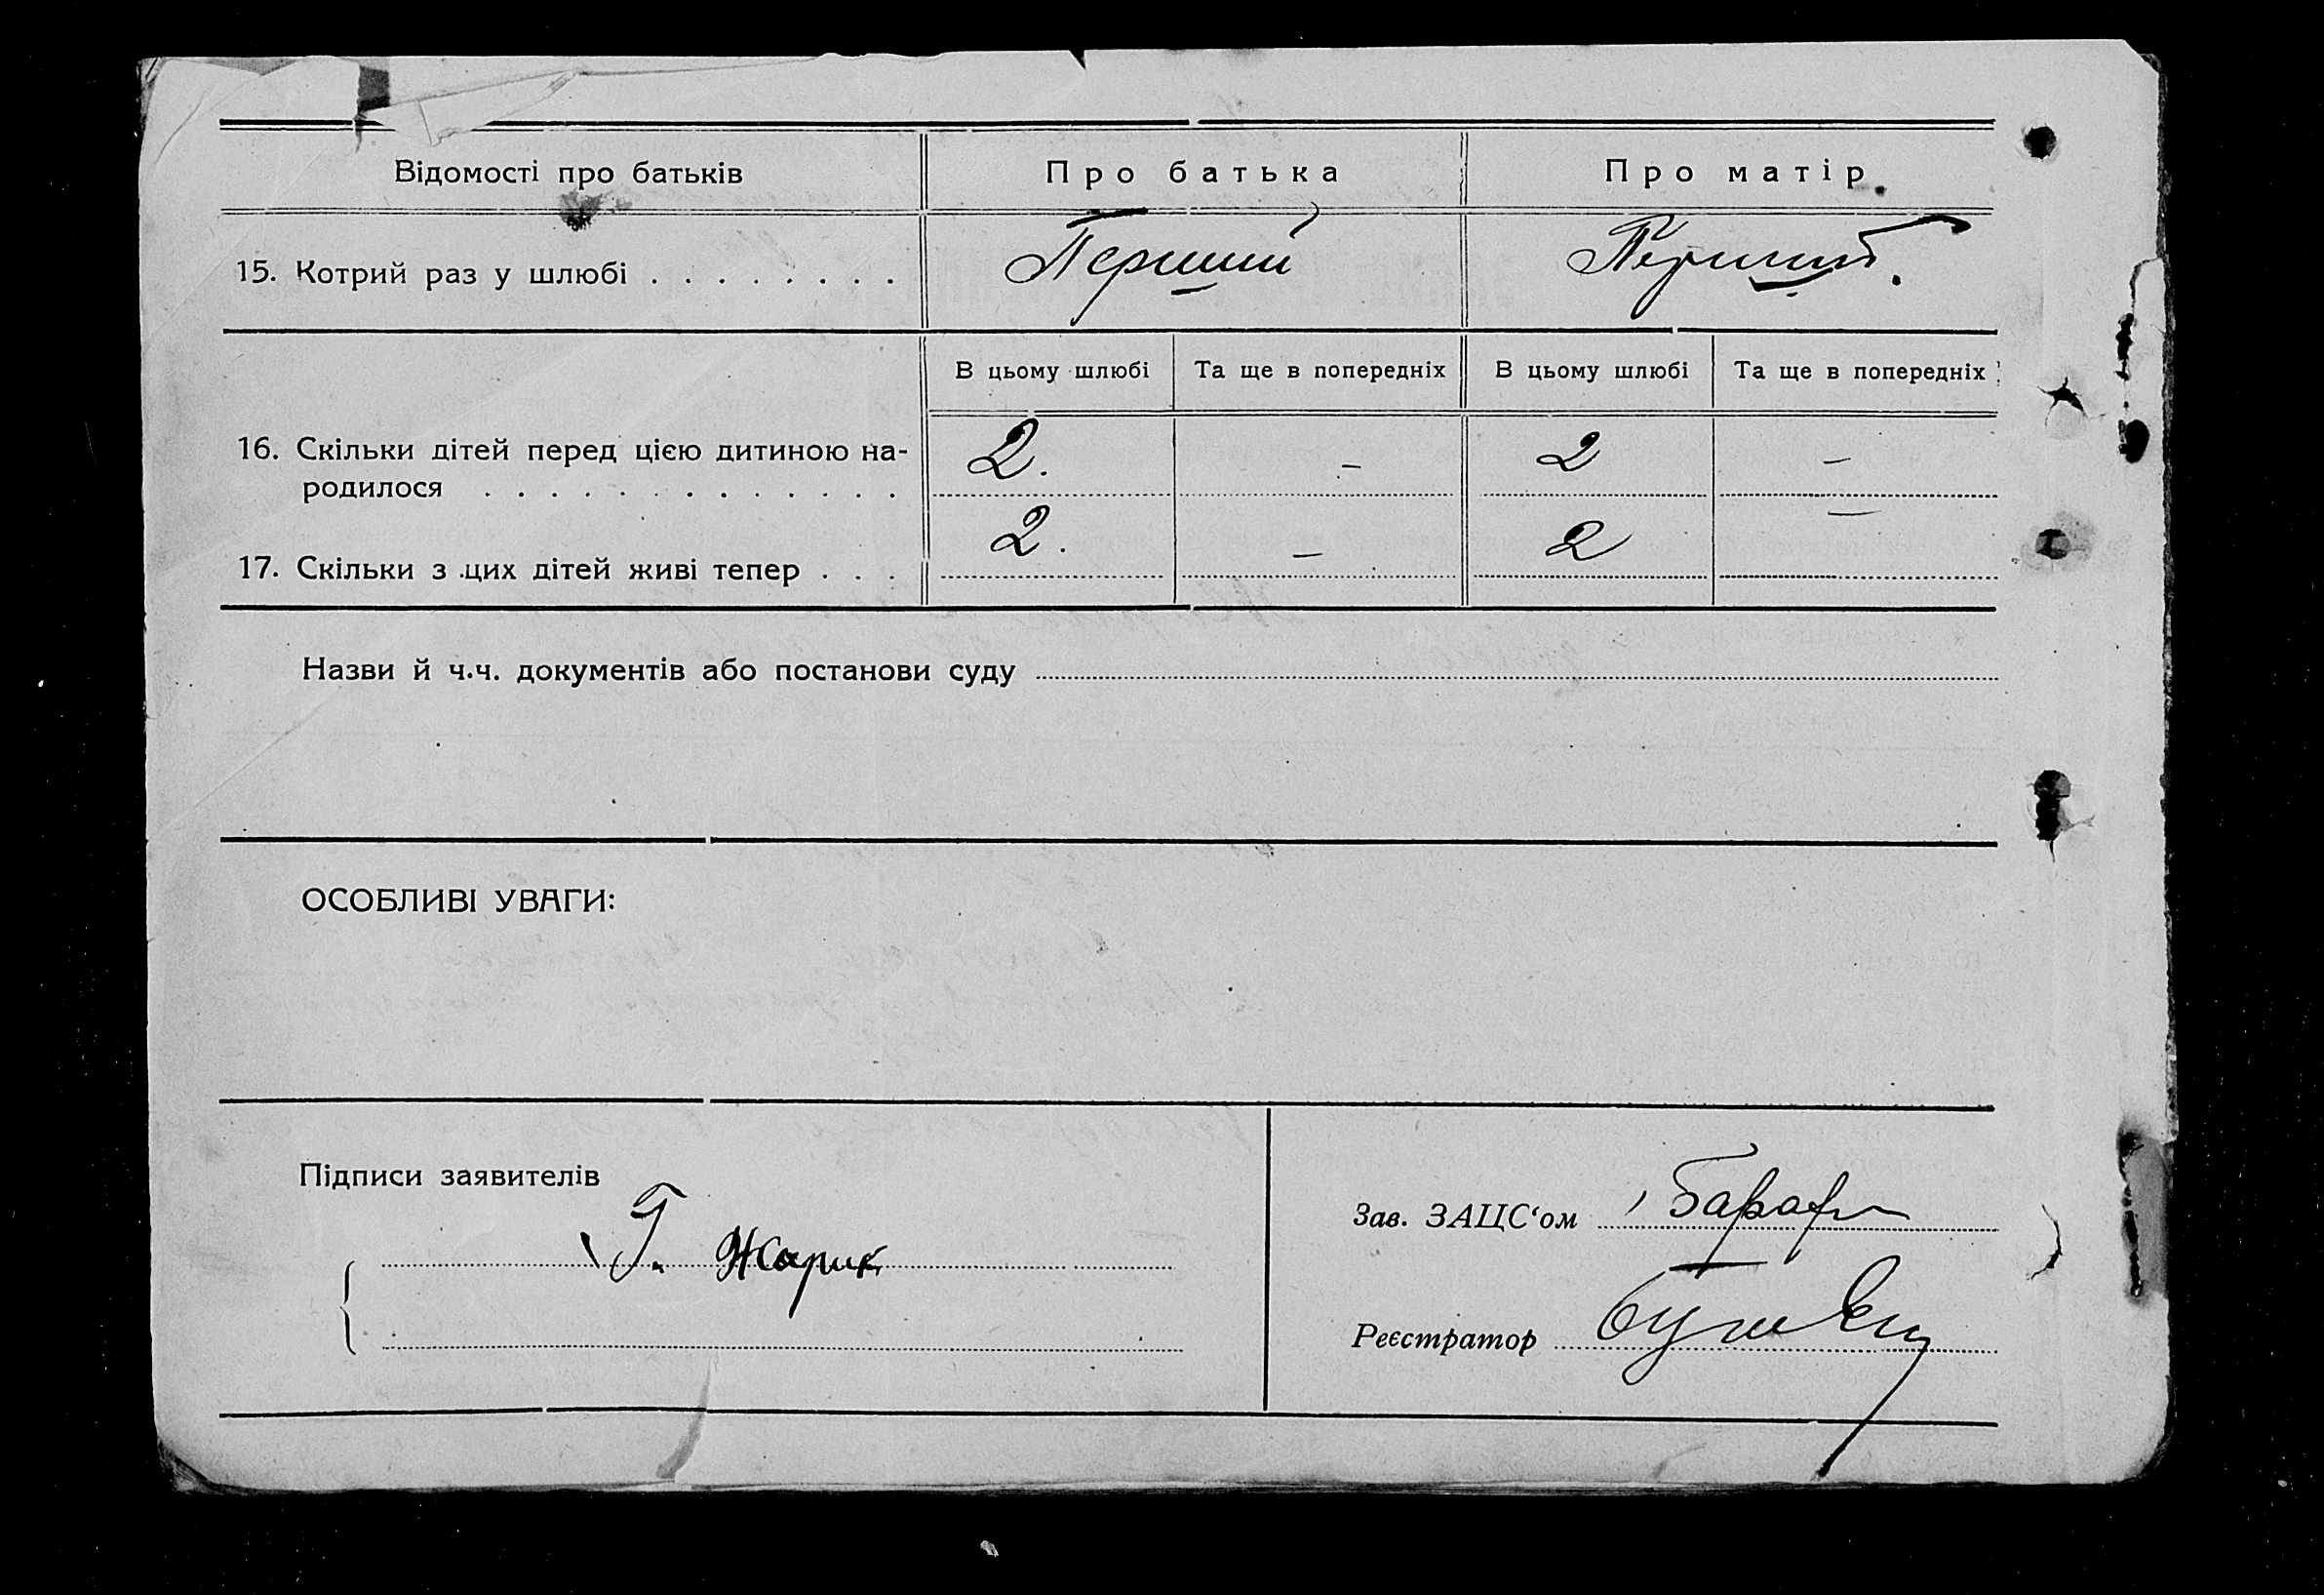 Відомості про батьків Про батька Про матір
15. Котрий раз у шлюбі . . . . . . . . Перший Перший.
В цьому шлюбі Та ще в попередніх В цьому шлюбі Та ще в попередніх
16. Скільки дітей перед цією дитиною на-
родилося . . . . . . . . . . . . . 2. – 2 –
17. Скільки з цих дітей живі тепер . . . 2. – 2 –
Назви й ч.ч. документів або постанови суду
ОСОБЛИВІ УВАГИ:
Підписи заявителів
Г. Жарик
Зав. ЗАЦС‘ом
Реєстратор